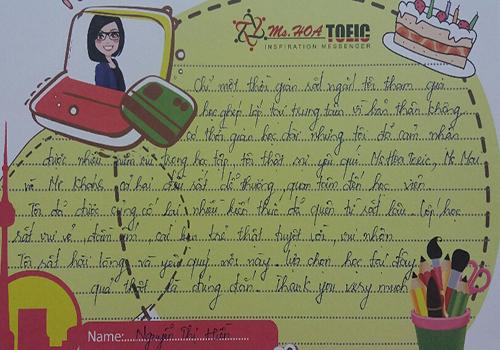 Ms. HOA TOEIC
INSPIRATION MESSENGER
Chỉ một thời gian rất ngắn tôi tham gia
học ghép lớp tại trung tâm vì bản thân không
có thời gian học dài nhưng tôi đã cảm nhận
được nhiều niềm vui trong học tập, tôi thật sự yêu quí Ms Hoa Toeic, Ms Mai
và Mr Khánh, cả hai đều rất dễ thương, quan tâm đến học viên.
Tôi đã được củng cố lại nhiều kiến thức đã quên từ rất lâu. Lớp học
rất vui vẻ, đầm ấm, các bạn trẻ thật tuyệt vời, vui nhộn.
Tôi rất hài lòng và yêu quý nơi này. Lựa chọn học tại đây
quả thật là đúng đắn. Thank you very much
Name: Nguyễn Thị Hiền